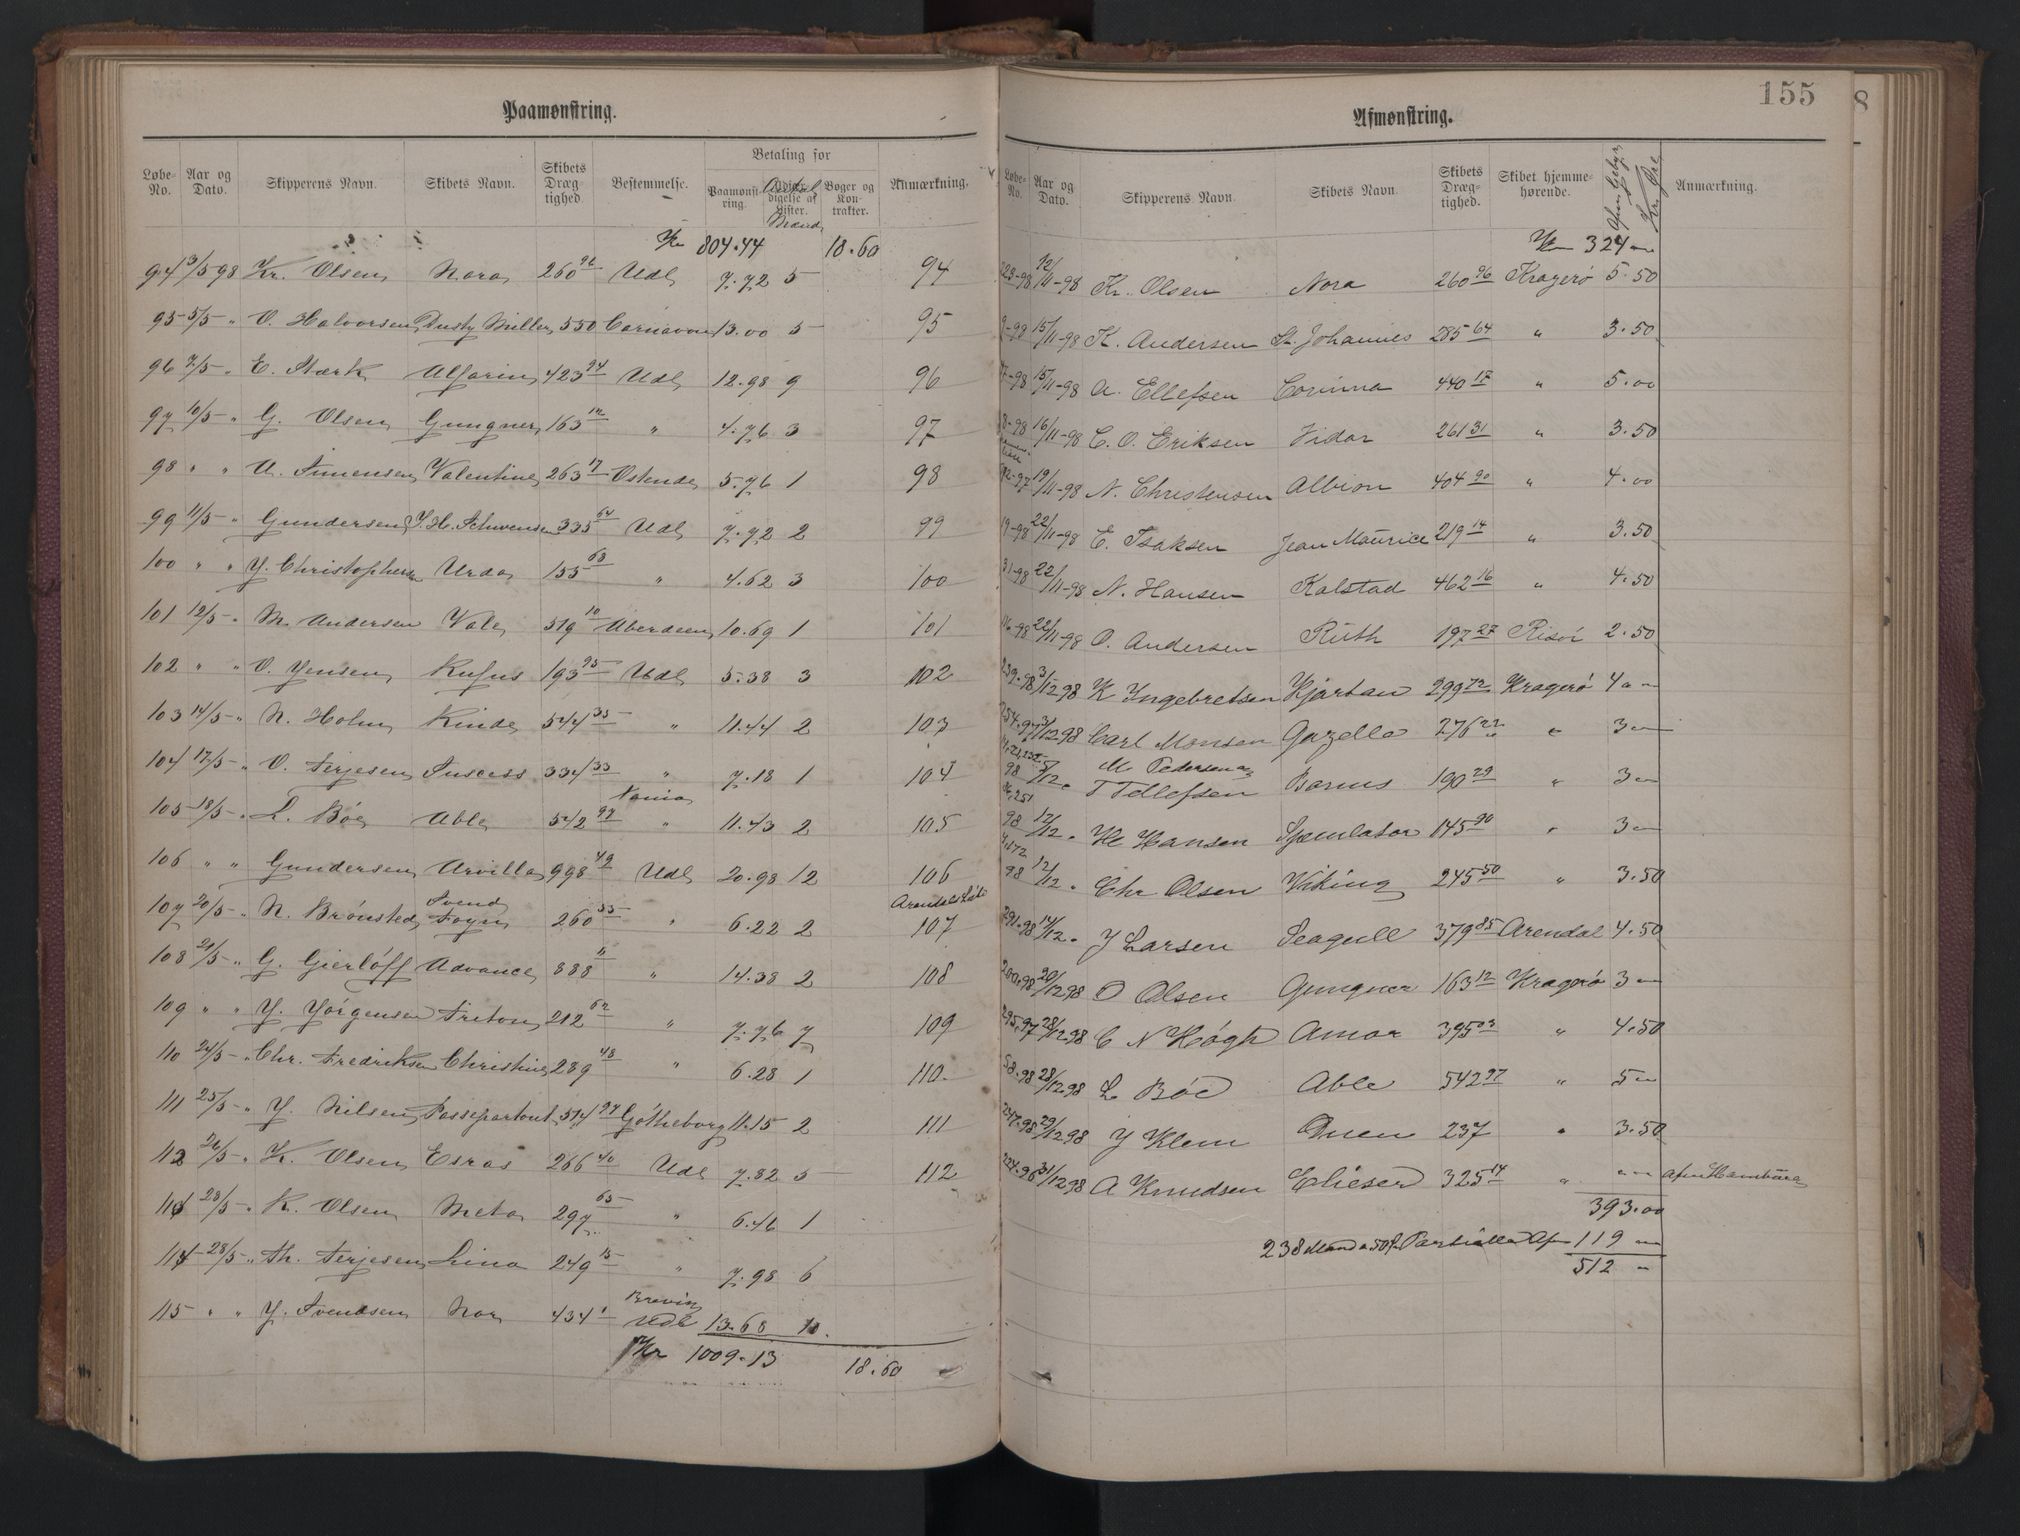 Paamønstring.
Løbe-No. Aar og Dato. Skipperens Navn. Skibets Navn. Skibets Dræg-tighed. Bestemmelse. Betaling for Paamønst-ring. Antal Mænd Bøger og Kon-trakter. Anmærkning.
Kr 804.44 18.60
94 3/5 98 Kr. Olsen Nora 260 96 Udl 7.72 5 94
95 5/5 " O. Halvorsen Dusty Miller 550 Carnavon 13.00 5 95
96 7/5 " E. Stærk Alfarin 423 94 Udl 12.98 9 96
97 10/5 " G. Olsen Gungner 163 12 " 4.76 3 97
98 " " A. Simensen Valentine 263 17 Ostende 5.76 1 98
99 11/5 " Gundersen J. H. Schwensen 335 64 Udl 7.72 2 99
100 " " J. Christophersen Urda 155 63 " 4.62 3 100
101 12/5 " M. Andersen Vale 519 10 Aberdeen 10.69 1 101
102 " " O. Jensen Rufus 193 95 Udl 5.38 3 102
103 14/5 " N. Holm Rinde 544 35 " 11.44 2 103
104 17/5 " O. Terjesen Sucsess 334 33 " 7.18 1 104
105 18/5 " L. Bøe Able 542 97 " 11.43 2 105
106 " " Gundersen Arvilla 998 49 Udl 20.98 12 106
107 20/5 " N. Brønsted Svend Foyn 260 55 " 6.22 2 Arendals 107
108 21/5 " G. Gierløff Advance 888 11 " 14.38 2 108
109 " " J. Jörgensen Triton 212 62 " 7.76 7 109
110 24/5 " Chr. Fredriksen Christine 289 48 " 6.28 1 110.
111 25/5 " J. Nilsen Passepartout 514 97 Götheborg 11.15 2 111
112 26/5 " K. Olsen Esras 266 40 Udl 7.82 5 112
113 28/5 " K. Olsen Meta 297 65 " 6.46 1
114 28/5 " Th. Terjesen Lina 249 15 " 7.98 6
115 " " J. Svendsen Nor 434 1 Udl 13.68 10.
Kr 1009.13 18.60
155
Afmønstring.
Løbe-No. Aar og Dato. Skipperens Navn. Skibets Navn. Skibets Dræg-tighed. Skibet hjemme-hørende. Kr. Øre Anmærkning.
Kr 324 "
223-98 12/11-98 Kr. Olsen Nora 260 96 Kragerø 5.50
9-98 15/11-98 K. Andersen St. Johannes 285 64 " 3.50
15/11-98 A. Ellefsen Corinna 440 17 " 5.00
8-98 16/11-98 C. O. Eriksen Vidar 261 31 " 3.50
19/11-98 N. Christensen Albion 404 90 " 4.00
19-98 22/11-98 E. Isaksen Jean Maurice 219 14 " 3.50
31-98 22/11-98 N. Hansen Kalstad 462 16 " 4.50
16-98 22/11-98 O. Andersen Ruth 197 27 Risør 2.50
239.98 3/12 98 K Ingebretsen Kjartan 299 72 Kragerø 4 "
254.97 3/12 98 Carl Monsen Gazelle 276 22 " 3 "
98 5/12. M Pedersen T Tellefsen Barnus 190 29 " 3 "
251 98 12/12. H Hansen Spekulator 145 90 " 3 "
172 98 12/12. Chr Olsen Viking 245 50 " 3.50
291.98 14/12. J Larsen Seagull 379 85 Arendal 4.50
200.98 20/12 98 O Olsen Gungner 163 12 Kragerø 3 "
295.97 28/12 98 C N Høgh Amor 395 03 " 4.50
58.98 28/12 98 L Bøe Able 542 97 " 5 "
247.98 29/12 98 J Klem Duen 237 " 3.50
224.96 31/12 98 A Knudsen Elieser 325 14 " " " Afm Hamburg
393.00
238 Mand a 50 Partielle Afm 119 "
512 "